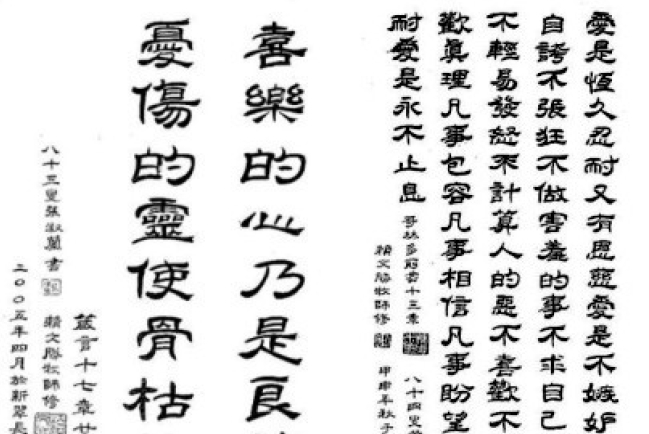 愛是恆久忍耐又有恩慈愛是不嫉妒
自誇不張狂不做害羞的事不求自己
不輕易發怒不計算人的惡不喜歡不
歡眞理凡事包容凡事相信凡事盼望
耐愛是永不止息
哥林多前書十三章
八十四叟
牧師修
甲申年秋于
喜樂的心乃是良
憂傷的靈使骨枯
箴言十七章廿
牧師修
八十三叟張淑蘭書
二00五年四月於新翠長